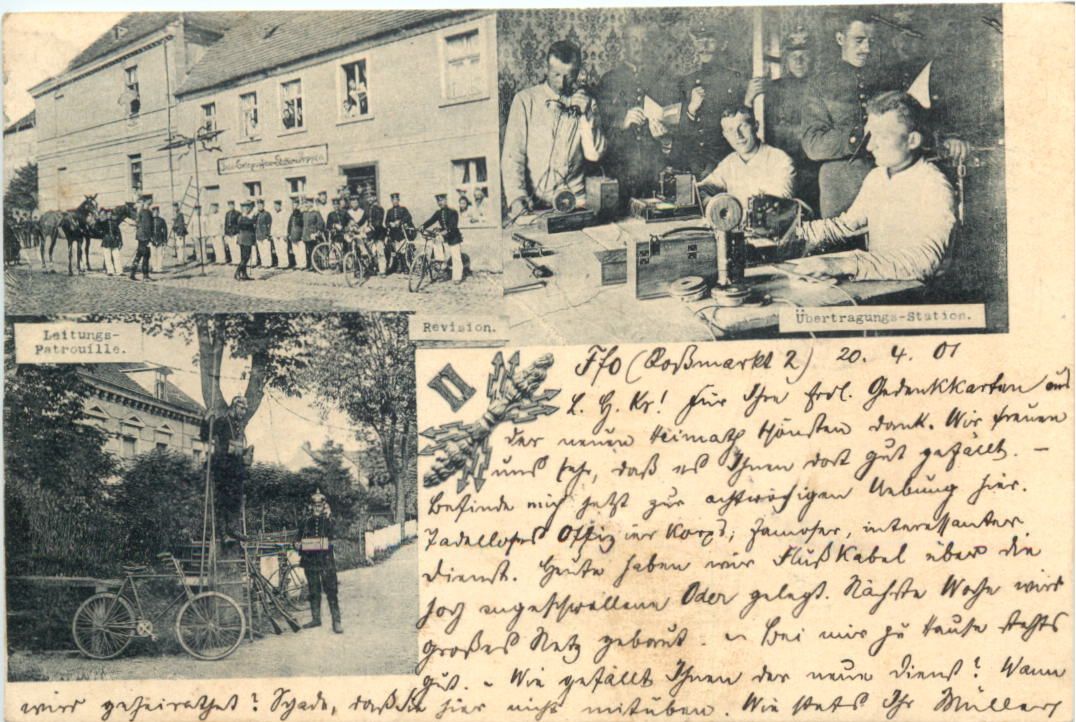 Leitungs-
Patrouille.
Revision.
Übertragungs-Station.
II
Ffo (Roßmarkt 2) 20. 4. 01
L. H. Kr! Für Ihre frdl. Gedenkkarten aus
der neuen Heimath schönsten Dank. Wir freuen
uns sehr, daß es Ihnen dort gut gefällt. –
Befinde mich jetzt zur achtwöchigen Uebung hier.
Tadelloses Offizier Korps; famoser, interessanter
Dienst. Heute haben wir Flußkabel über die
hoch angeschwollene Oder gelegt. Nächste Woche wird
großes Netz gebaut. – Bei mir zu Hause steht's
gut. – Wie gefällt Ihnen der neue Dienst? Wann
wird geheirathet? Schade, daß Sie hier nicht mitüben. Wie stets Ihr Müllers